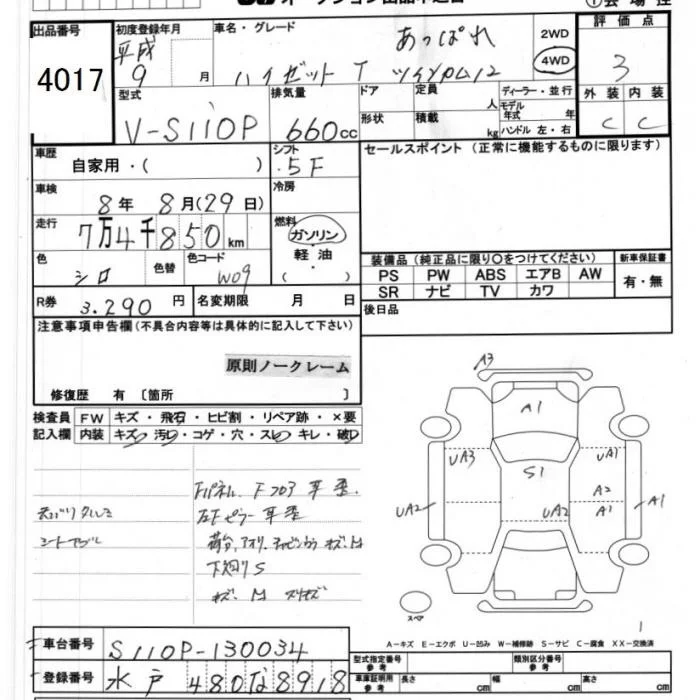 出品番号
4017
初度登録年月
平成
9 月
車名・グレード
あっぱれ
ハイゼット T ツインカム12
2WD
4WD
評価点
3
型式
V-S110P
排気量
660cc
ドア
形状
定員 人
積載 kg
ディーラー・並行
モデル年式 年
ハンドル 左・右
外装 内装
C C
車歴
自家用・( )
シフト
5F
セールスポイント(正常に機能するものに限ります)
車検
8年 8月(29日)
冷房
走行
7万4千850km
燃料
ガソリン
軽油
( )
色
シロ
色替
色コード
W09
装備品(純正品に限り〇をつけてください)
新車保証書
PS PW ABS エアB AW
有・無
SR ナビ TV カワ
R券
3.290円
名変期限 月 日
後日品
注意事項申告欄(不具合内容等は具体的に記入して下さい)
原則ノークレーム
修復歴 有 〔箇所 〕
検査員 FW キズ・飛石・ヒビ割・リペア跡・×要
記入欄 内装 キズ・汚レ・コゲ・穴・スレ・キレ・破レ
下廻りS
A3
A1
UA3
UA1
S1
A2
UA2
UA2
A1
A1
スペア
A-キズ E-エクボ U-凹み W-補修跡 S-サビ C-腐食 XX-交換済
車台番号
S110P-130034
型式指定番号
参考
類別区分番号
参考
登録番号
水戸480な8918
車庫証明用
参考
長さ cm
幅 cm
高さ cm